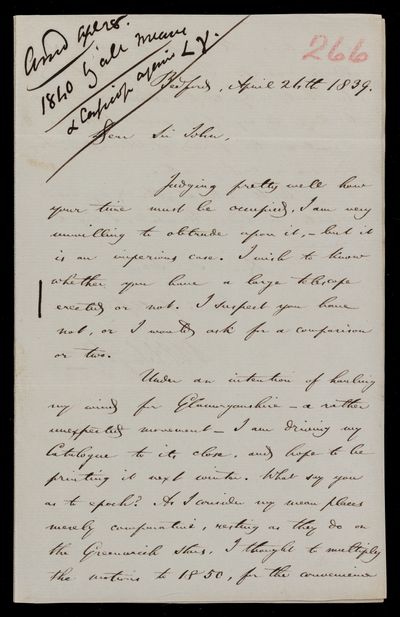 Ansd Apl 28.
1840 Gale Means
& Comparison again L γ.
266
Bedford, April 26th 1839.
Dear Sir John,
Judging pretty well how
your time must be occupied, I am very
unwilling to obtrude upon it, – but it
is an imperious case. I wish to know
whether you have a large telescope
erected or not. I suspect you have
not, or I would ask for a comparison
or two.
Under an intention of hauling
my wind for Glamorganshire – a rather
unexpected movement – I am driving my
Catalogue to its close, and hope to be
printing it next winter. What say you
as to epoch? As I consider my mean places
merely comparative, resting as they do on
the Greenwich stars, I thought to multiply
the motions to 1850, for the convenience